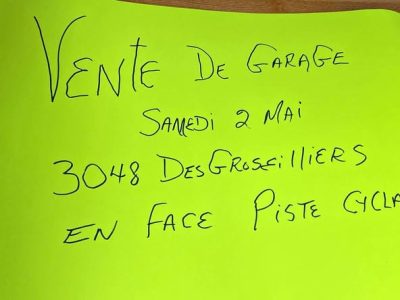 Vente De Garage
Samedi 2 Mai
3048 DesGroseilliers
En Face Piste Cycla